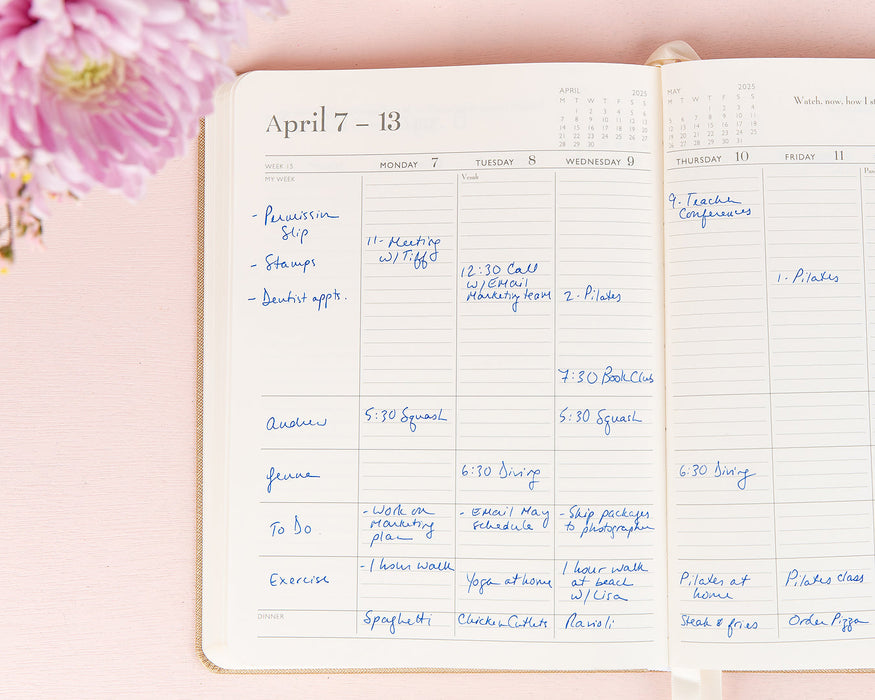 April 7 – 13
APRIL 2025
M T W T F S S
1 2 3 4 5 6
7 8 9 10 11 12 13
14 15 16 17 18 19 20
21 22 23 24 25 26 27
28 29 30
MAY 2025
M T W T F S S
1 2 3 4
5 6 7 8 9 10 11
12 13 14 15 16 17 18
19 20 21 22 23 24 25
26 27 28 29 30 31
Watch, now, how I st
WEEK 15
MONDAY 7
TUESDAY 8
WEDNESDAY 9
THURSDAY 10
FRIDAY 11
MY WEEK
- Permission
Slip
- Stamps
- Dentist appts.
11- Meeting
w/Tiff
12:30 Call
w/EMail
Marketing team
2. Pilates
7:30 Book Club
9. Teacher
Conferences
1. Pilates
Andrew
5:30 Squash
5:30 Squash
Jenna
6:30 Diving
6:30 Diving
To Do
- Work on
Marketing
plan
- EMail May
schedule
- Ship packages
to photographer
Exercise
- 1 hour walk
Yoga at home
1 hour walk
at beach
w/Lisa
Pilates at
home
Pilates class
DINNER
Spaghetti
Chicken Cutlets
Ravioli
Steak & fries
Order Pizza